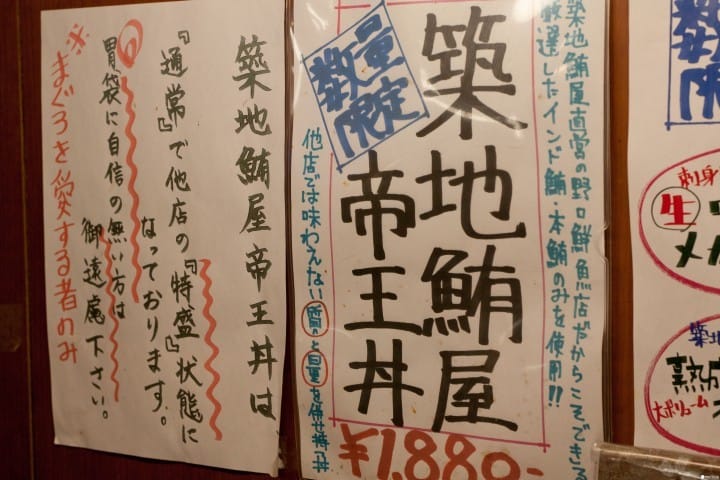 築地鮪屋帝王丼は
『通常』で他店の『特盛』状態に
なっております。
胃袋に自信の無い方は
御遠慮下さい。
※まぐろを愛する者のみ
築地鮪屋直営の野口鮮魚店だからこそできる
厳選したインド鮪・本鮪のみを使用!!
築地鮪屋
帝王丼
数量
限定
他店では味わえない質と量を併せ持つ丼
¥1,880-
数
限定
刺身
生
メカ
築地
熟成
大ボリューム